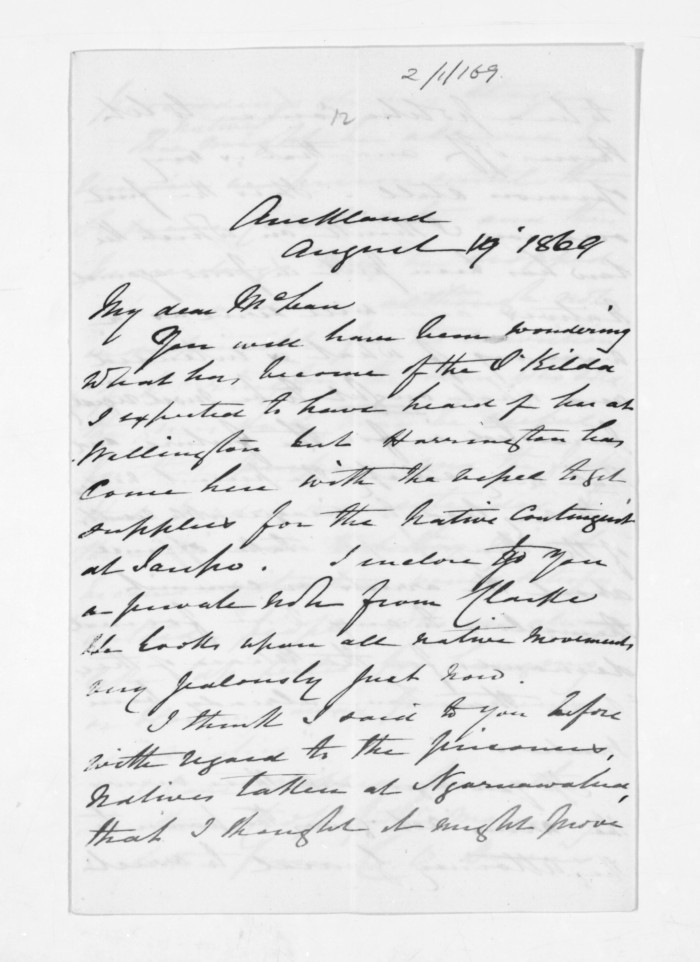 2/1/169.
12
Auckland
August 19th 1869
My dear McLean
You will have been wondering
What has become of the St Kilda
I expected to have heard of her at
Wellington but Harrington has
Come here with the vessel to get
supplies for the Native Contingent
at Taupo. I enclose to you
a private note from Clarke
He looks upon all native movements
very jealously just now.
I think I said to you before
with regard to the prisoners,
Natives taken at Ngaruawahia,
that I thought it might prove